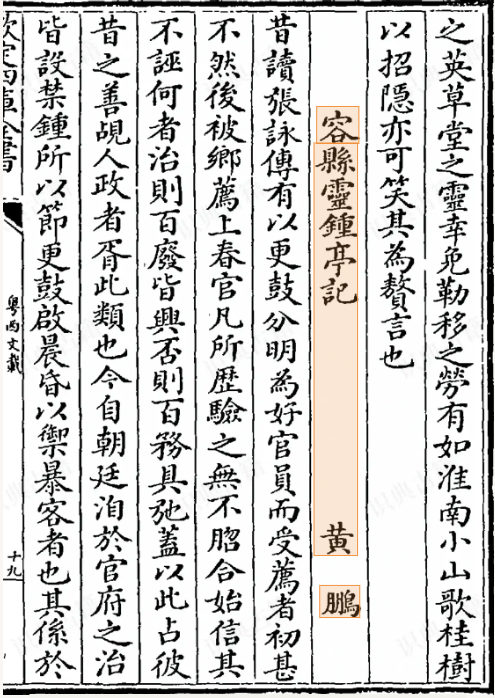 之英草堂之靈幸免勒移之勞有如淮南小山歌桂樹
以招隠亦可笑其為贅言也
容縣靈鍾亭記 黄 鵬
昔讀張詠傳有以更鼓分明為好官員而受薦者初甚
不然後被鄉薦上春官凡所歴驗之無不脗合始信其
不誣何者治則百廢皆興否則百務具弛葢以此占彼
昔之善覘人政者胥此類也今自朝廷洎於官府之治
皆設禁鍾所以節更鼓啟晨昏以禦暴客者也其係於
欽定四庫全書
粤西文載
十九